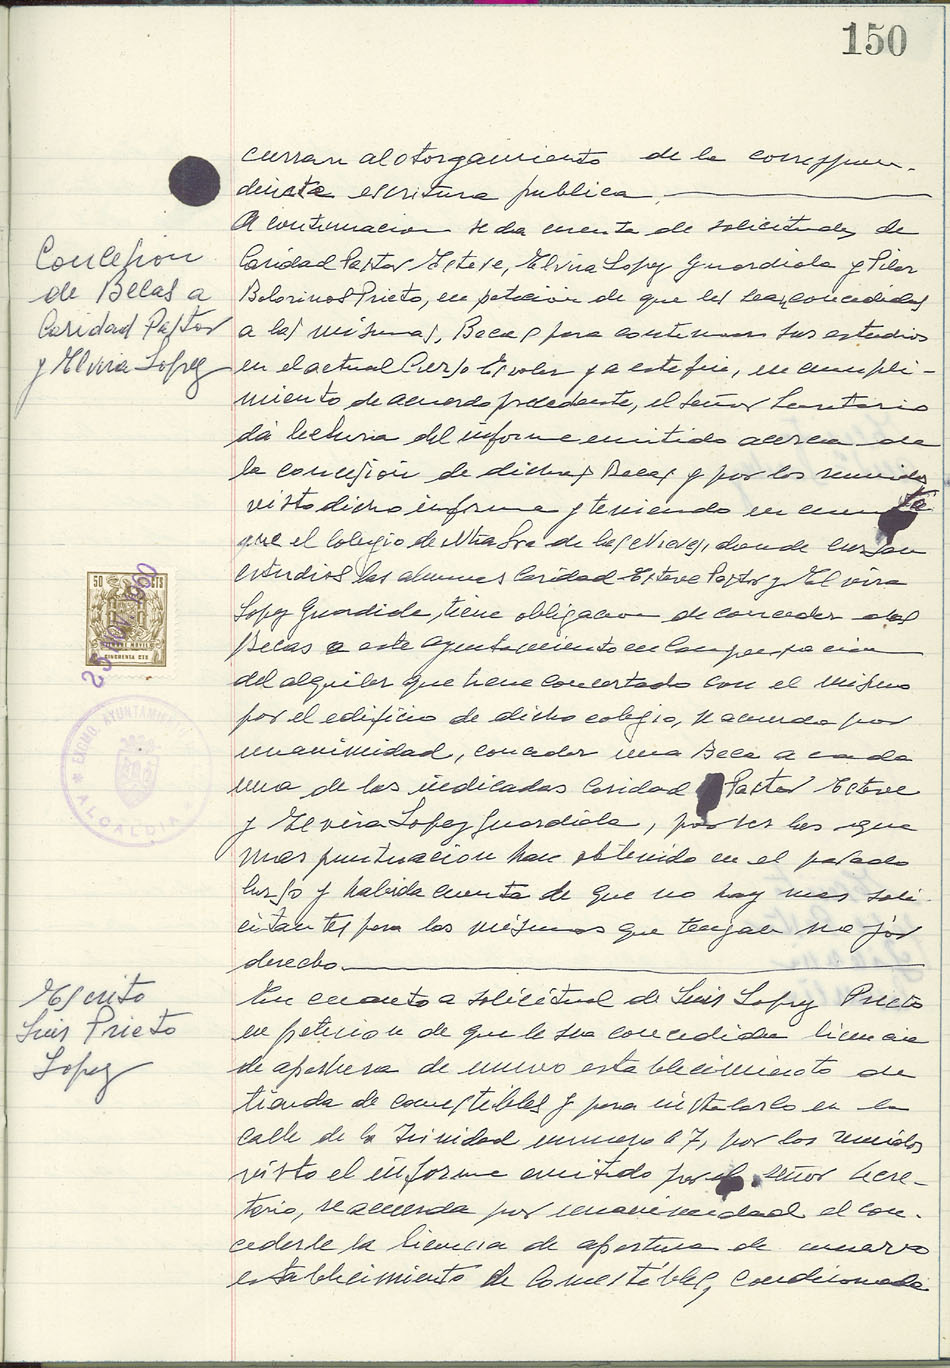 150
curran al otorgamiento de la correspon-
diente escritura publica.
A continuacion se da cuenta de solicitudes de
Concesion
de Becas a
Caridad Pastor
y Elvira Lopez
Caridad Pastor Esteve, Elvira Lopez Guardiola y Pilar
Belorinos Prieto, en peticion de que les sean concedidas
a las mismas, Becas para continuar sus estudios
en el actual Curso Escolar y a este fin, en cumpli-
miento de acuerdo precedente, el señor Secretario
da lectura del informe emitido acerca de
la concesion de dichas Becas y por los reunidos
visto dicho informe y teniendo en cuenta
que el Colegio de Ntra Sra de las Nieves, donde cursan
estudios las alumnas Caridad Esteve Pastor y Elvira
Lopez Guardiola, tiene obligacion de conceder dos
Becas a este Ayuntamiento en compensacion
del alquiler que tiene concertado con el mismo
por el edificio de dicho colegio, se acuerda por
unanimidad, conceder una Beca a cada
una de las indicadas Caridad Pastor Esteve
y Elvira Lopez Guardiola, por ser las que
mas puntuacion han obtenido en el pasado
curso y habida cuenta de que no hay mas soli-
citantes para las mismas que tengan mejor
derecho.
Escrito
Luis Prieto
Lopez
En cuanto a solicitud de Luis Lopez Prieto
en peticion de que le sea concedida licencia
de apertura de nuevo establecimiento de
tienda de comestibles y para instalarlo en la
calle de la Trinidad numero 67, por los reunidos
visto el informe emitido por el señor Secre-
tario, se acuerda por unanimidad el con-
cederle la licencia de apertura de nuevo
establecimiento de Comestibles, condicionada
50 CTS
CINCUENTA CTS
25 NOV. 1960
EXCMO AYUNTAMIENTO
ALCALDIA